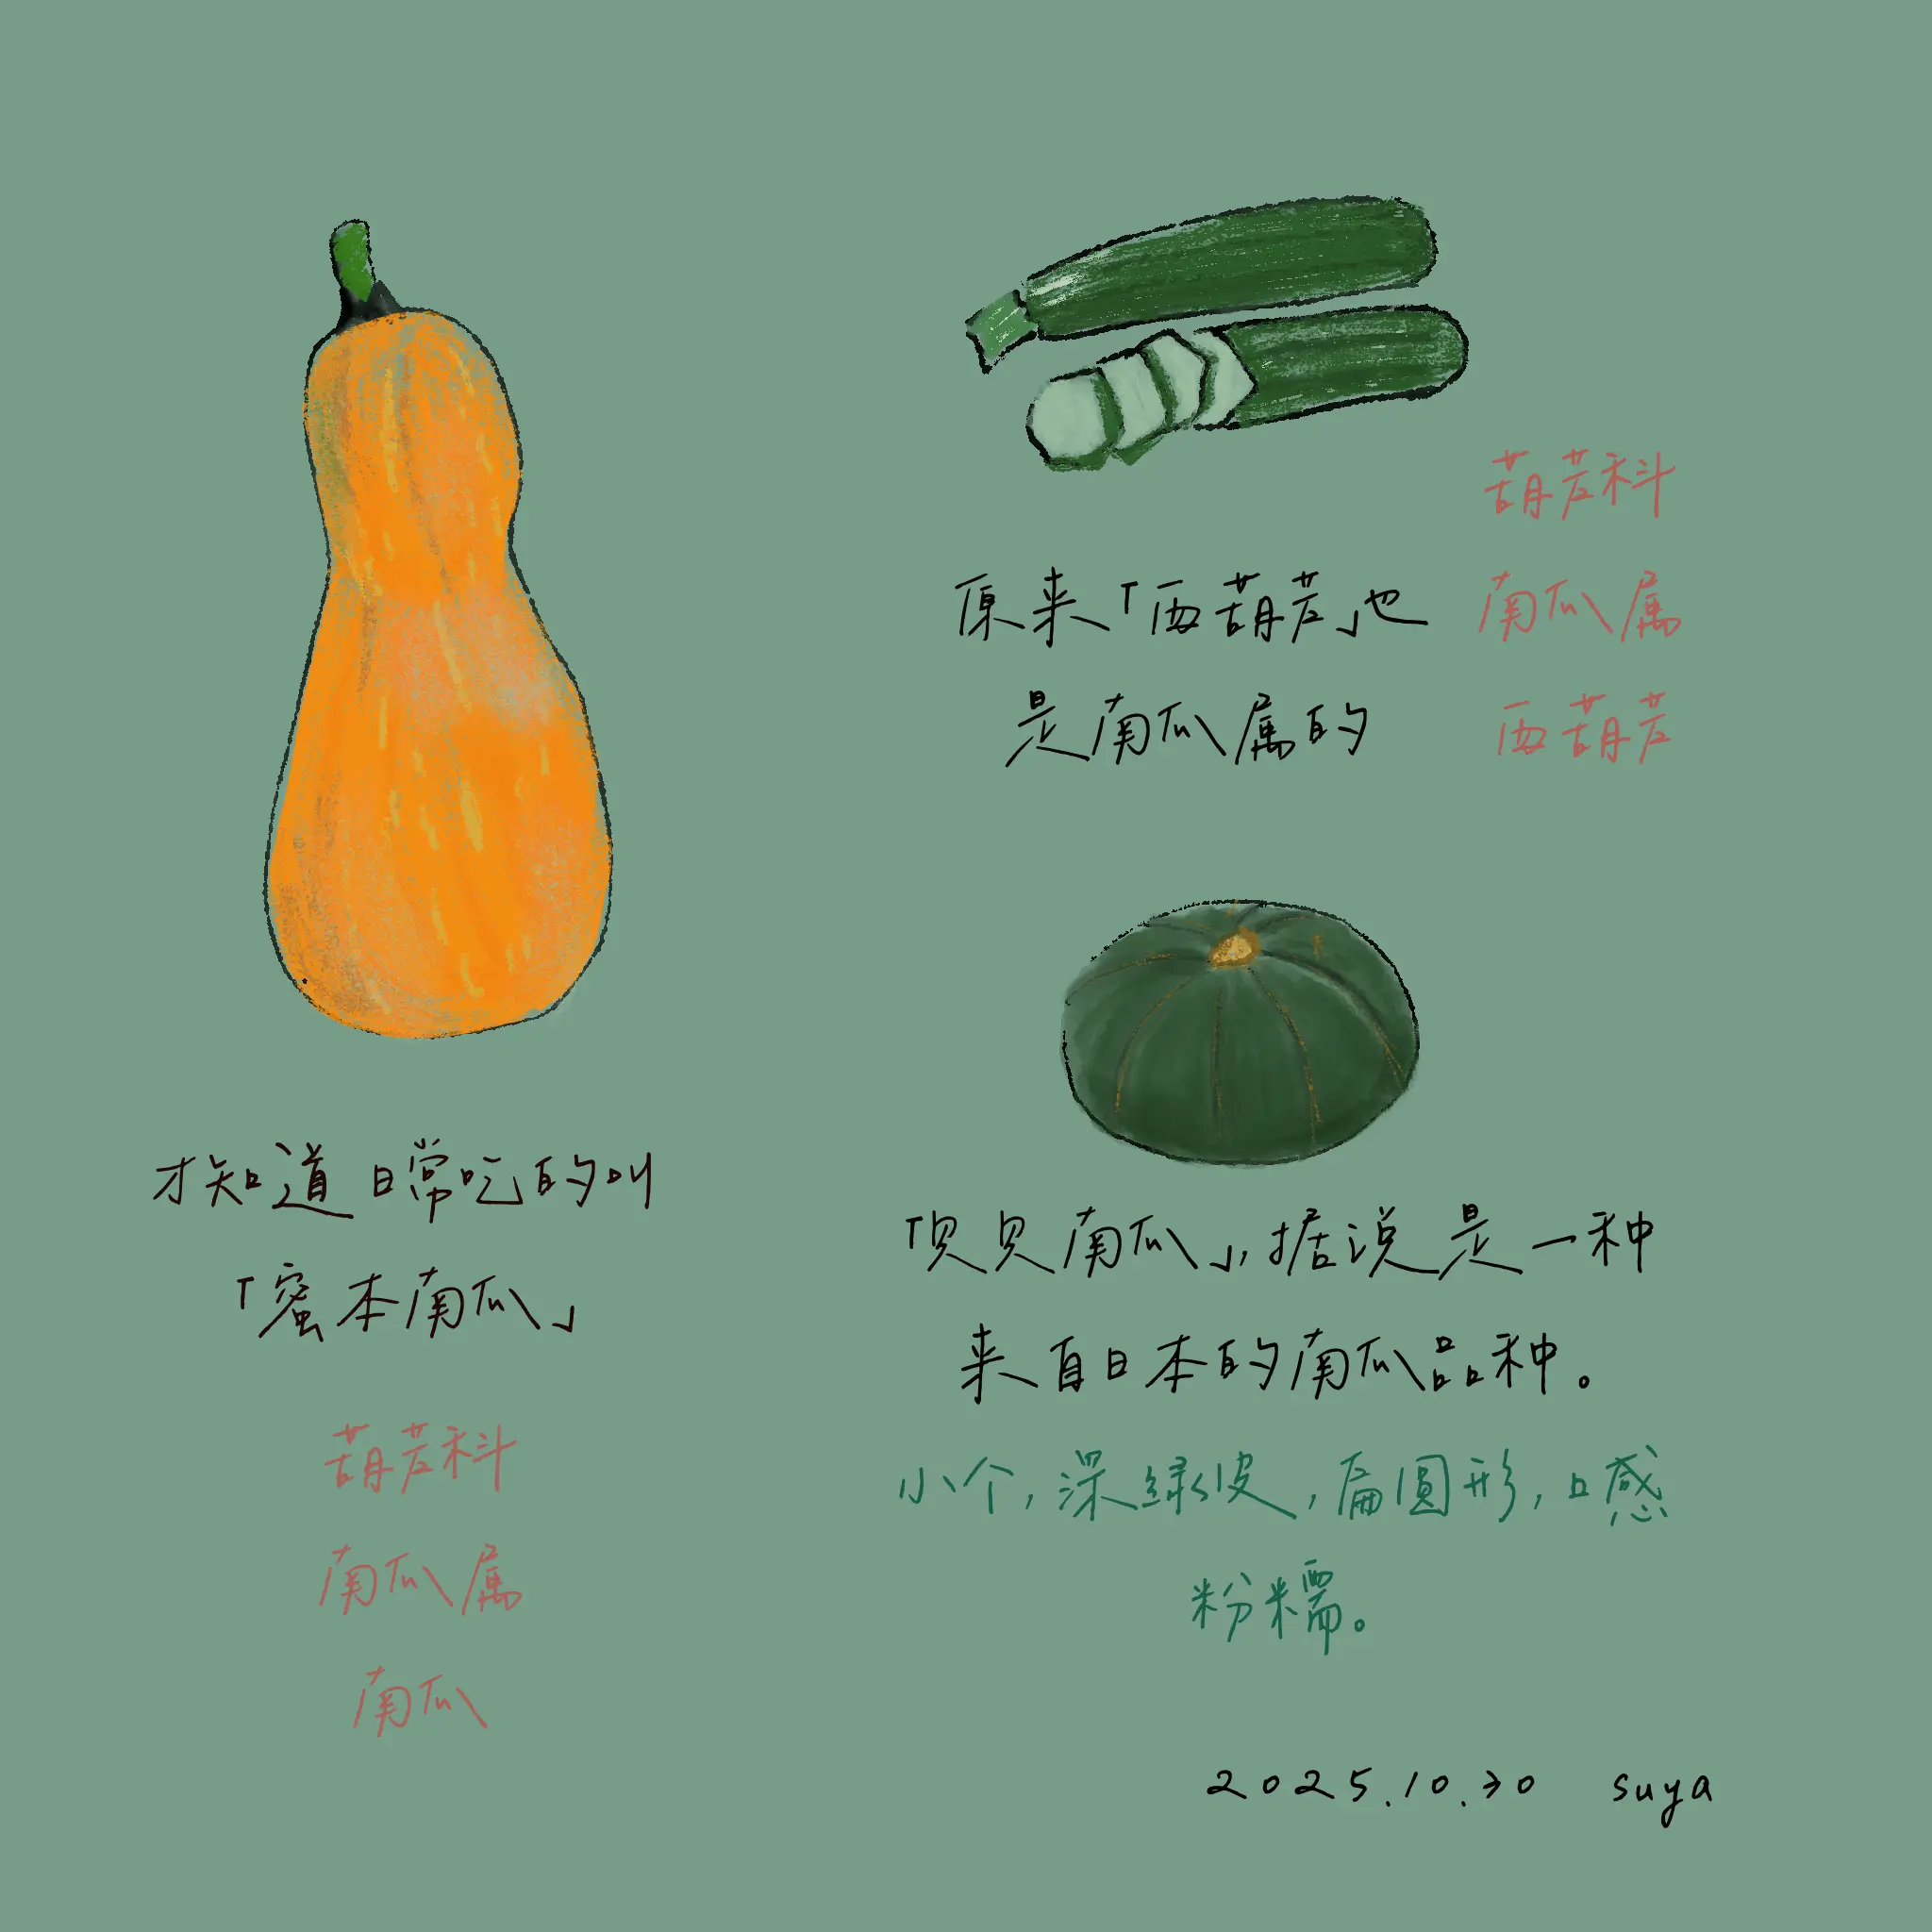 才知道日常吃的叫
「蜜本南瓜」
葫芦科
南瓜属
南瓜
原来「西葫芦」也
是南瓜属的
葫芦科
南瓜属
西葫芦
「贝贝南瓜」,据说是一种
来自日本的南瓜品种。
小个,深绿皮,扁圆形,口感
粉糯。
2025.10.30 suya